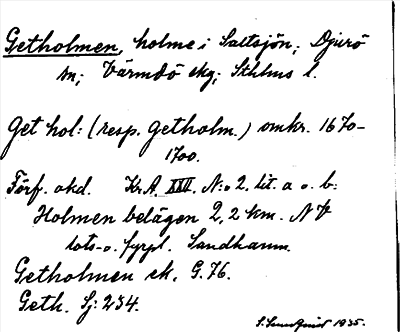 Getholmen, holme i Saltsjön; Djurö
sn; Värmdö skg; Sthlms l.
Get hol: (resp. Getholm.) omkr. 1670-
1700.
Förf. okd. Kr.A. XXV. N:o 2. lit. a o. b:
Holmen belägen 2,2 km. NV
lots- o. fyrpl. Sandhamn.
Getholmen ek. G.76.
Geth. Sj: 234.
S. 1935.